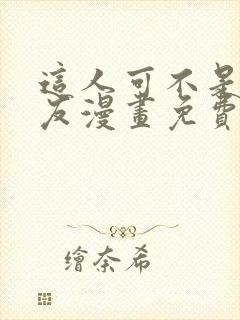 這人可不是
友漫畫免費
繪奈希